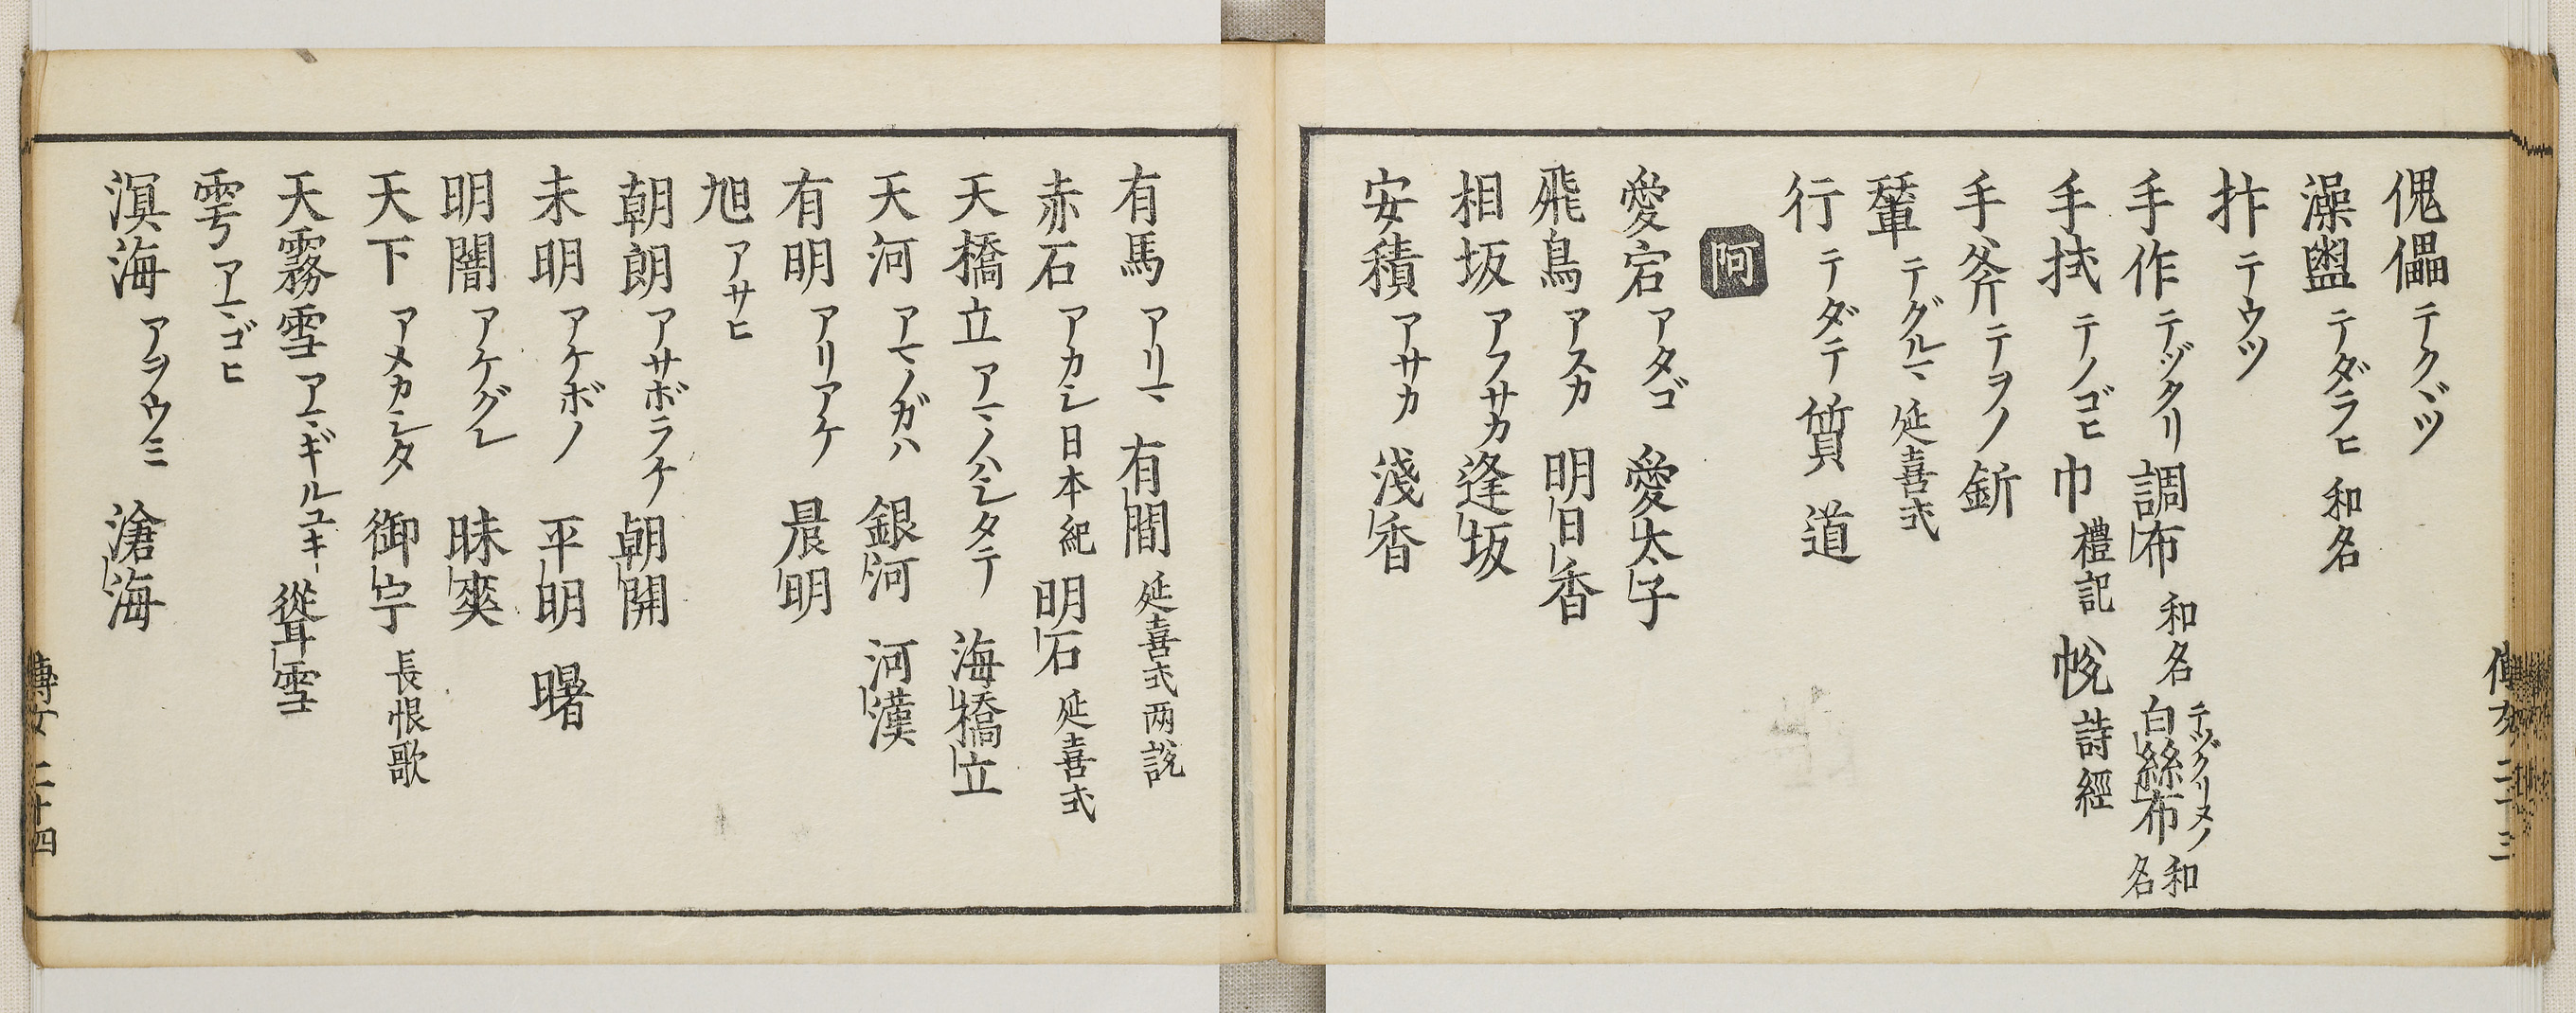 傀儡テクヾツ
澡盥テダラヒ 和名
拃テウツ
手作テヅクリ 調布 和名 白絲布テヅクリヌノ 和名
手拭テノゴヒ 巾禮記 帨詩經
手斧テヲノ 釿
輦テグルマ 延喜式
行テダテ 質 道
阿
愛宕アタゴ 愛太子
飛鳥アスカ 明日香
相坂アフサカ 逢坂
安積アサカ 淺香
有馬アリマ 有間 延喜式两説
赤石アカシ 日本紀 明石 延喜式
天橋立アマノハシタテ 海橋立
天河アマノガハ 銀河 河漢
有明アリアケ 晨明
旭アサヒ
朝朗アサボラケ 朝開
未明アケボノ 平明 曙
明闇アケグレ 昧爽
天下アメカシタ 御宇 長恨歌
天霧雪アマギルユキ 聳雪
雩アマゴヒ
溟海アヲウミ 滄海
二十四